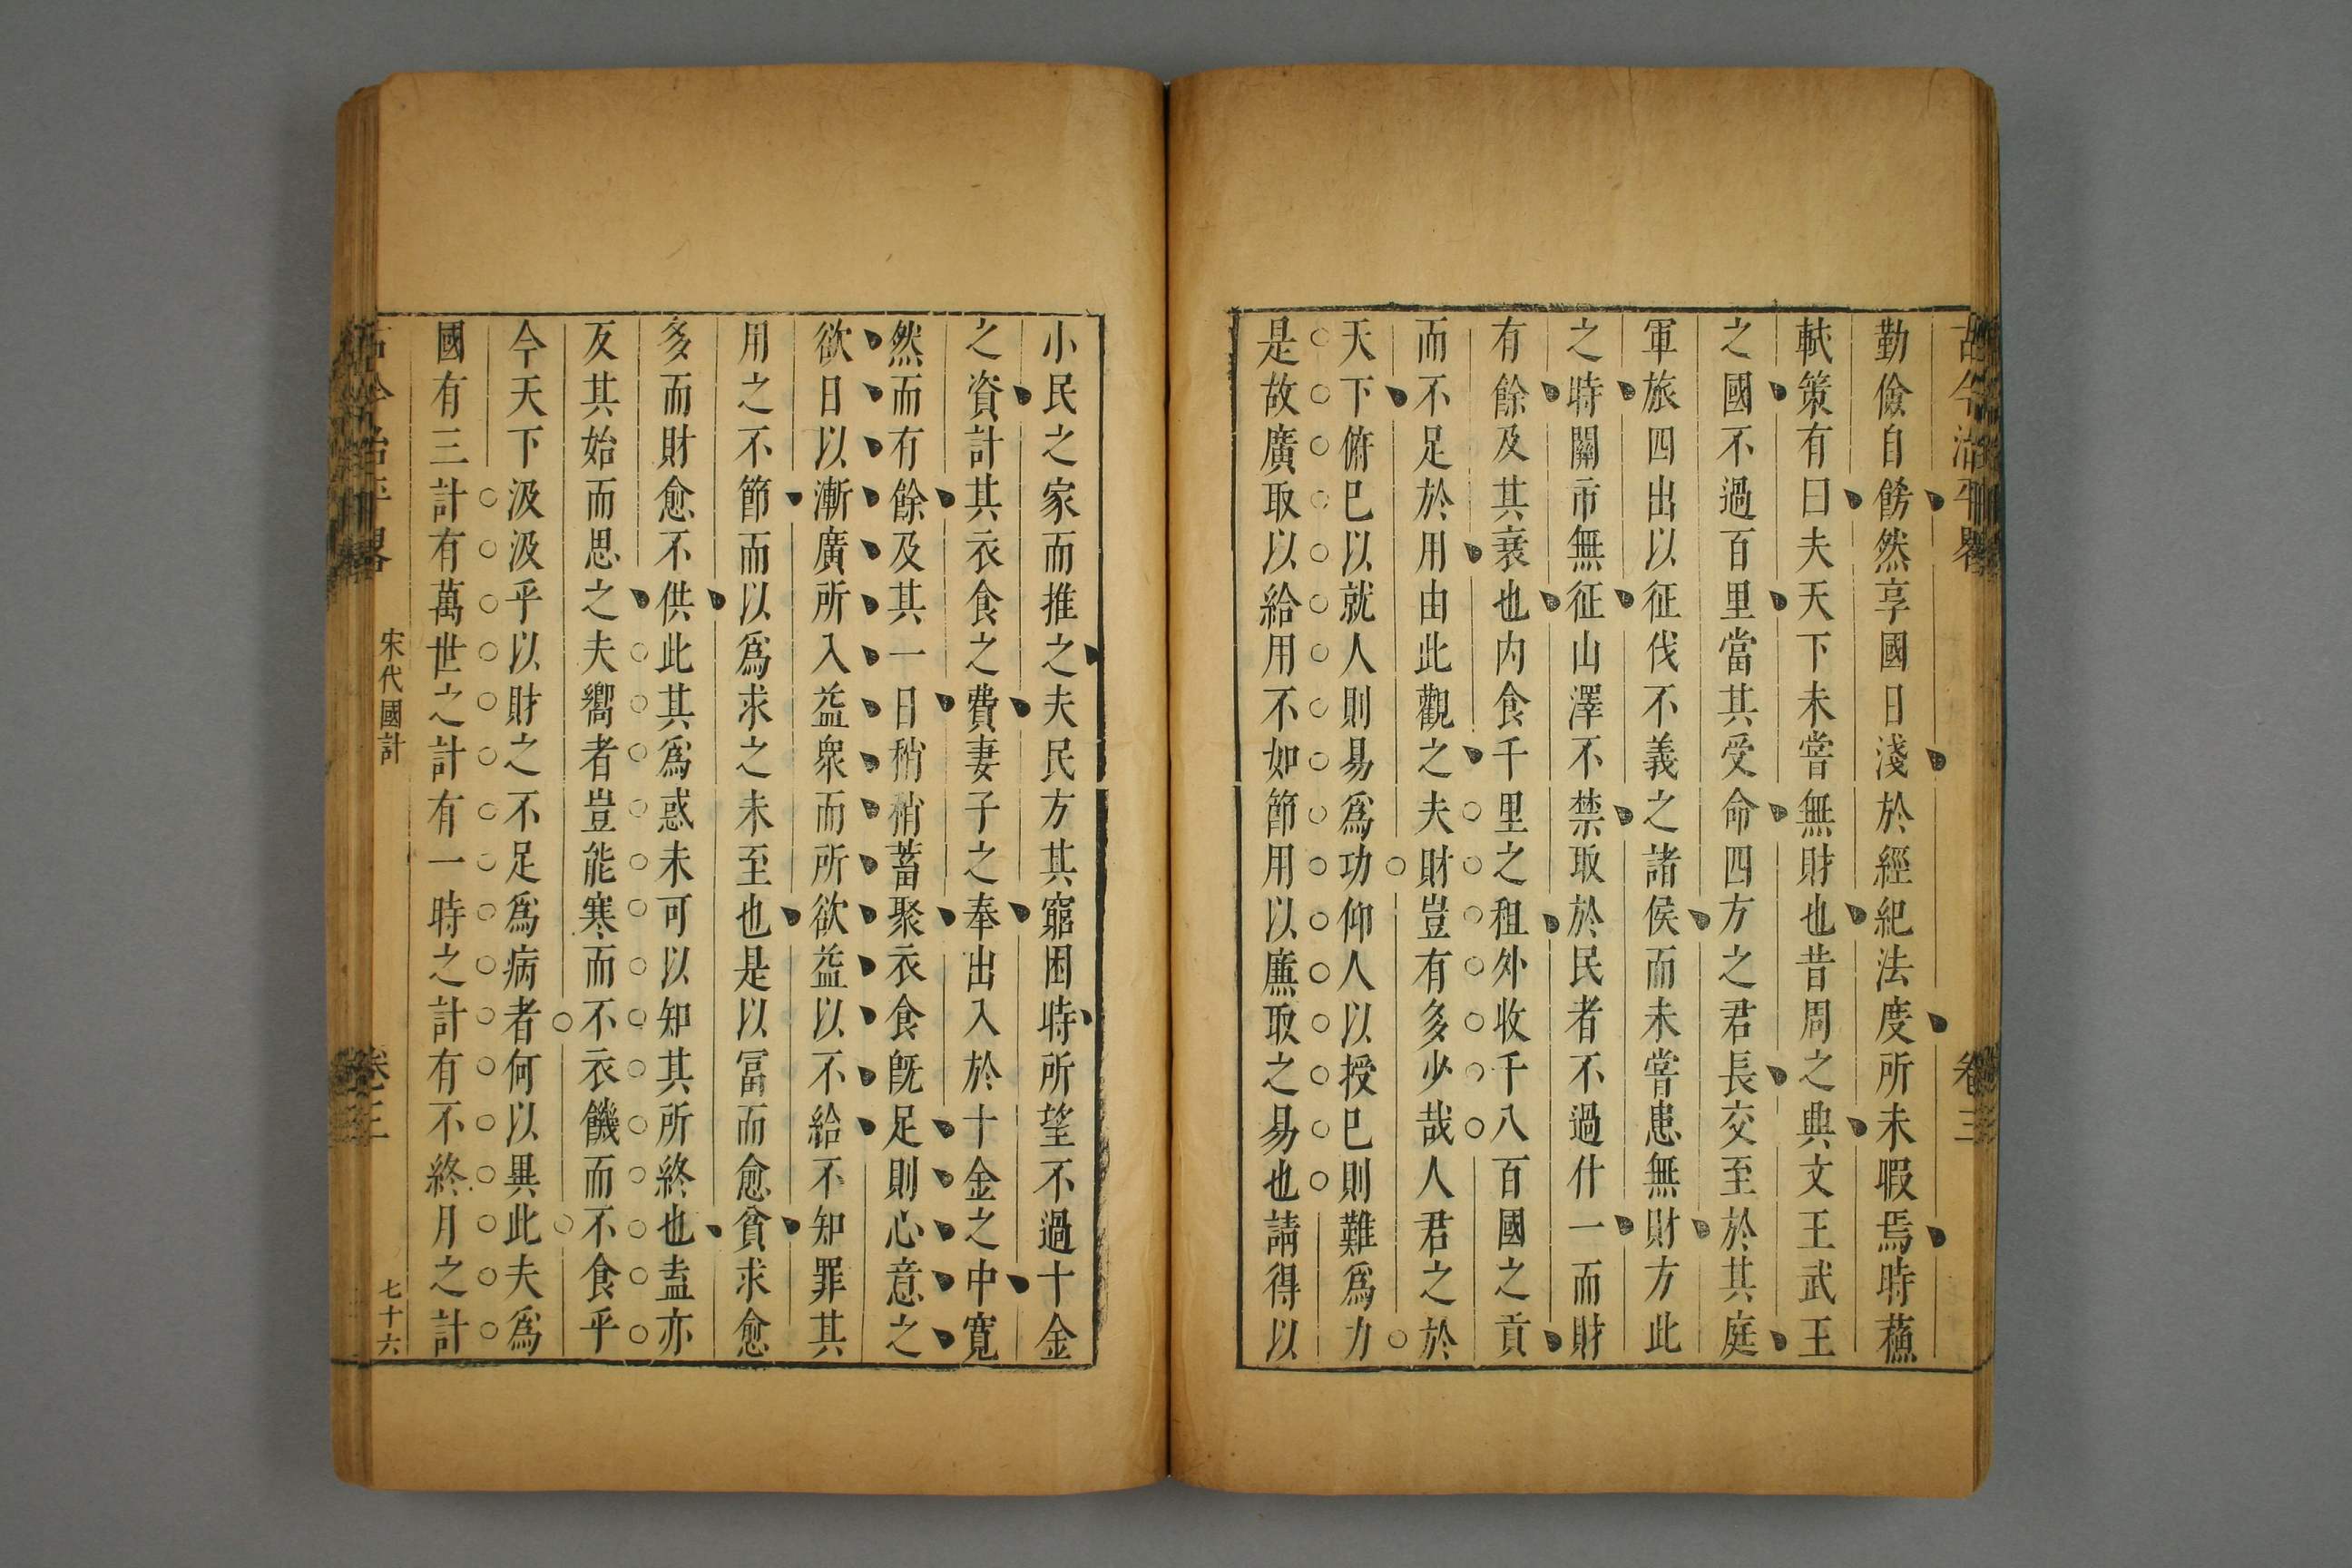 古今治平畧
卷三
勤儉自餝然享國日淺於經紀法度所未暇焉時蘓
軾策有曰夫天下未嘗無財也昔周之興文王武王
之國不過百里當其受命四方之君長交至於其庭
軍旅四出以征伐不義之諸侯而未嘗患無財方此
之時關市無征山澤不禁取於民者不過什一而財
有餘及其衰也内食千里之租外收千八百國之貢
而不足於用由此觀之夫財豈有多少哉人君之於
天下俯巳以就人則易爲功仰人以授巳則難爲力
是故廣取以給用不如節用以廉取之易也請得以
小民之家而推之夫民方其窮困時所望不過十金
之資計其衣食之費妻子之奉出入於十金之中寬
然而有餘及其一日稍稍蓄聚衣食旣足則心意之
欲日以漸廣所入益衆而所欲益以不給不知罪其
用之不節而以爲求之未至也是以冨而愈貧求愈
多而財愈不供此其爲惑未可以知其所終也盍亦
反其始而思之夫嚮者豈能寒而不衣饑而不食乎
今天下汲汲乎以財之不足爲病者何以異此夫爲
國有三計有萬世之計有一時之計有不終月之計
古今治平畧
宋代國計
卷三
七十六